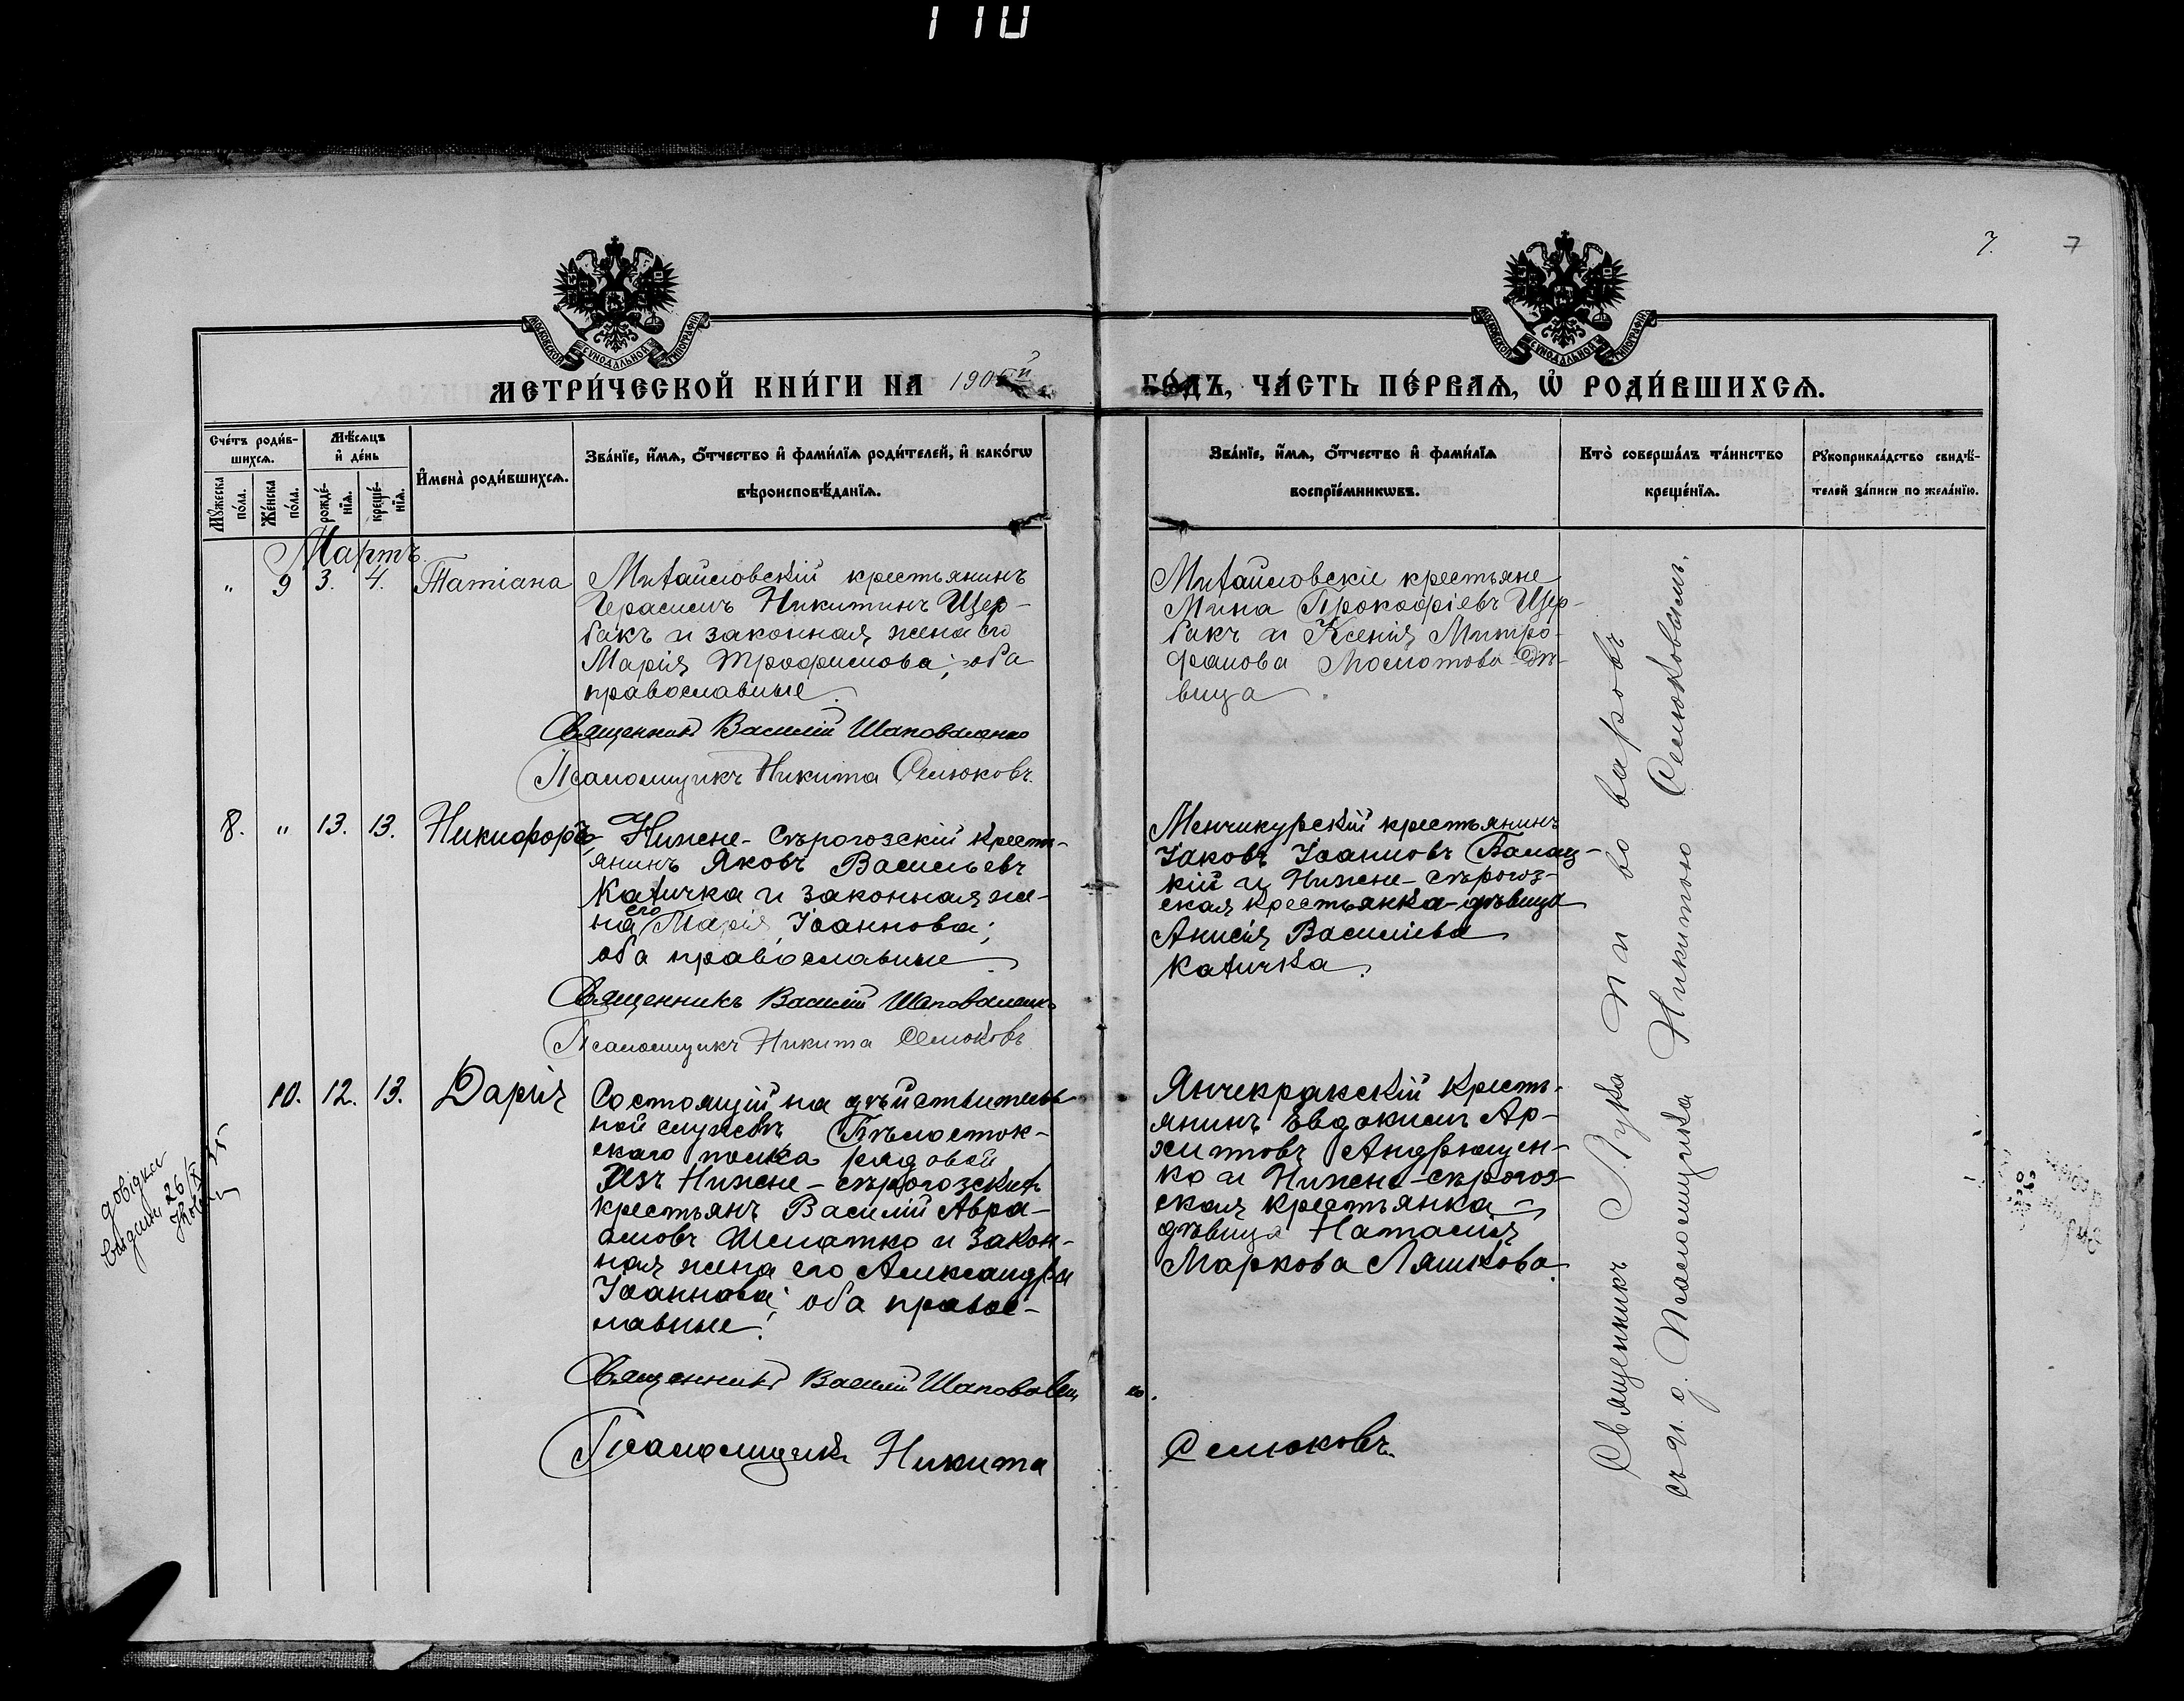 110
7.
7
МОСКОВСКОЙ СѴНОДАЛЬНОЙ ТИПОГРАФІИ
МОСКОВСКОЙ СѴНОДАЛЬНОЙ ТИПОГРАФІИ
МЕТРИ́ЧЕСКОЙ КНИ́ГИ НА 190
ГО́ДЪ, ЧА́СТЬ ПЕ́РВАѦ, Ѽ РОДИ́ВШИХСѦ.
Сче́тъ роди́в-
шихсѧ.
Мꙋ́жеска по́ла.
Же́нска по́ла.
Мѣ́сѧцъ
и҆ де́нь
рожде́-
нїѧ.
креще́-
нїѧ.
И҆мена̀ роди́вшихсѧ.
Зва́нїе, и҆́мѧ, ѻ҆́тчество и҆ фами́лїѧ роди́телей, и҆ како́гѡ
вѣроисповѣ́данїѧ.
Зва́нїе, и҆́мѧ, ѻ҆́тчество и҆ фами́лїѧ
воспрїе́мникѡвъ.
Кто̀ соверша́лъ та́инство
креще́нїѧ.
Рꙋкоприкла́дство свидѣ́-
телей за́писи по жела́нїю.
Мартъ
" 9 3. 4. Татіана
Михайловскій крестьянинъ
Герасимъ Никитинъ Щер-
бакъ и законная жена его
Марія Трофимова; оба
православные.
Священникъ Василій Шаповаленко
Псаломщикъ Никита Семюковъ.
Михайловскіе крестьяне
Мина Прокофіевъ Щер-
бакъ и Ксенія Митро-
фанова Момотова дѣ-
вица.
8. " 13. 13. Никифоръ
Нижне-Сѣрогозскій кресть-
янинъ Яковъ Васильевъ
Кахичка и законная же-
на его Марія Іоаннова;
оба православные.
Священникъ Василій Шаповаленко
Псаломщикъ Никита Семюковъ
Менчикурскій крестьянинъ
Іаковъ Іоанновъ
кій и Нижне-сѣрогоз-
ская крестьянка-дѣвица
Анисія Василіева
Кахичка.
10. 12. 13. Дарія
Состоящій на дѣйствитель-
ной службѣ Бѣлосток-
скаго полка рядовой
изъ Нижне-сѣрогозскихъ
крестьянъ Василій Авра-
амовъ Шматко и закон-
ная жена его Александра
Іоаннова; оба правос-
лавные.
Священникъ Василій Шаповален
ко.
Псаломщикъ Никита
Семюковъ.
Янчекракскій кресть-
янинъ Евдокимъ Ар-
хиповъ Андрющен-
ко и Нижне-сѣрогоз-
ская крестьянка
дѣвица Наталія
Маркова Ляшкова.
Священникъ Лука Пивоваровъ
съ и. д. Псаломщика Никитою Семюковымъ.
довідка
видана 26/